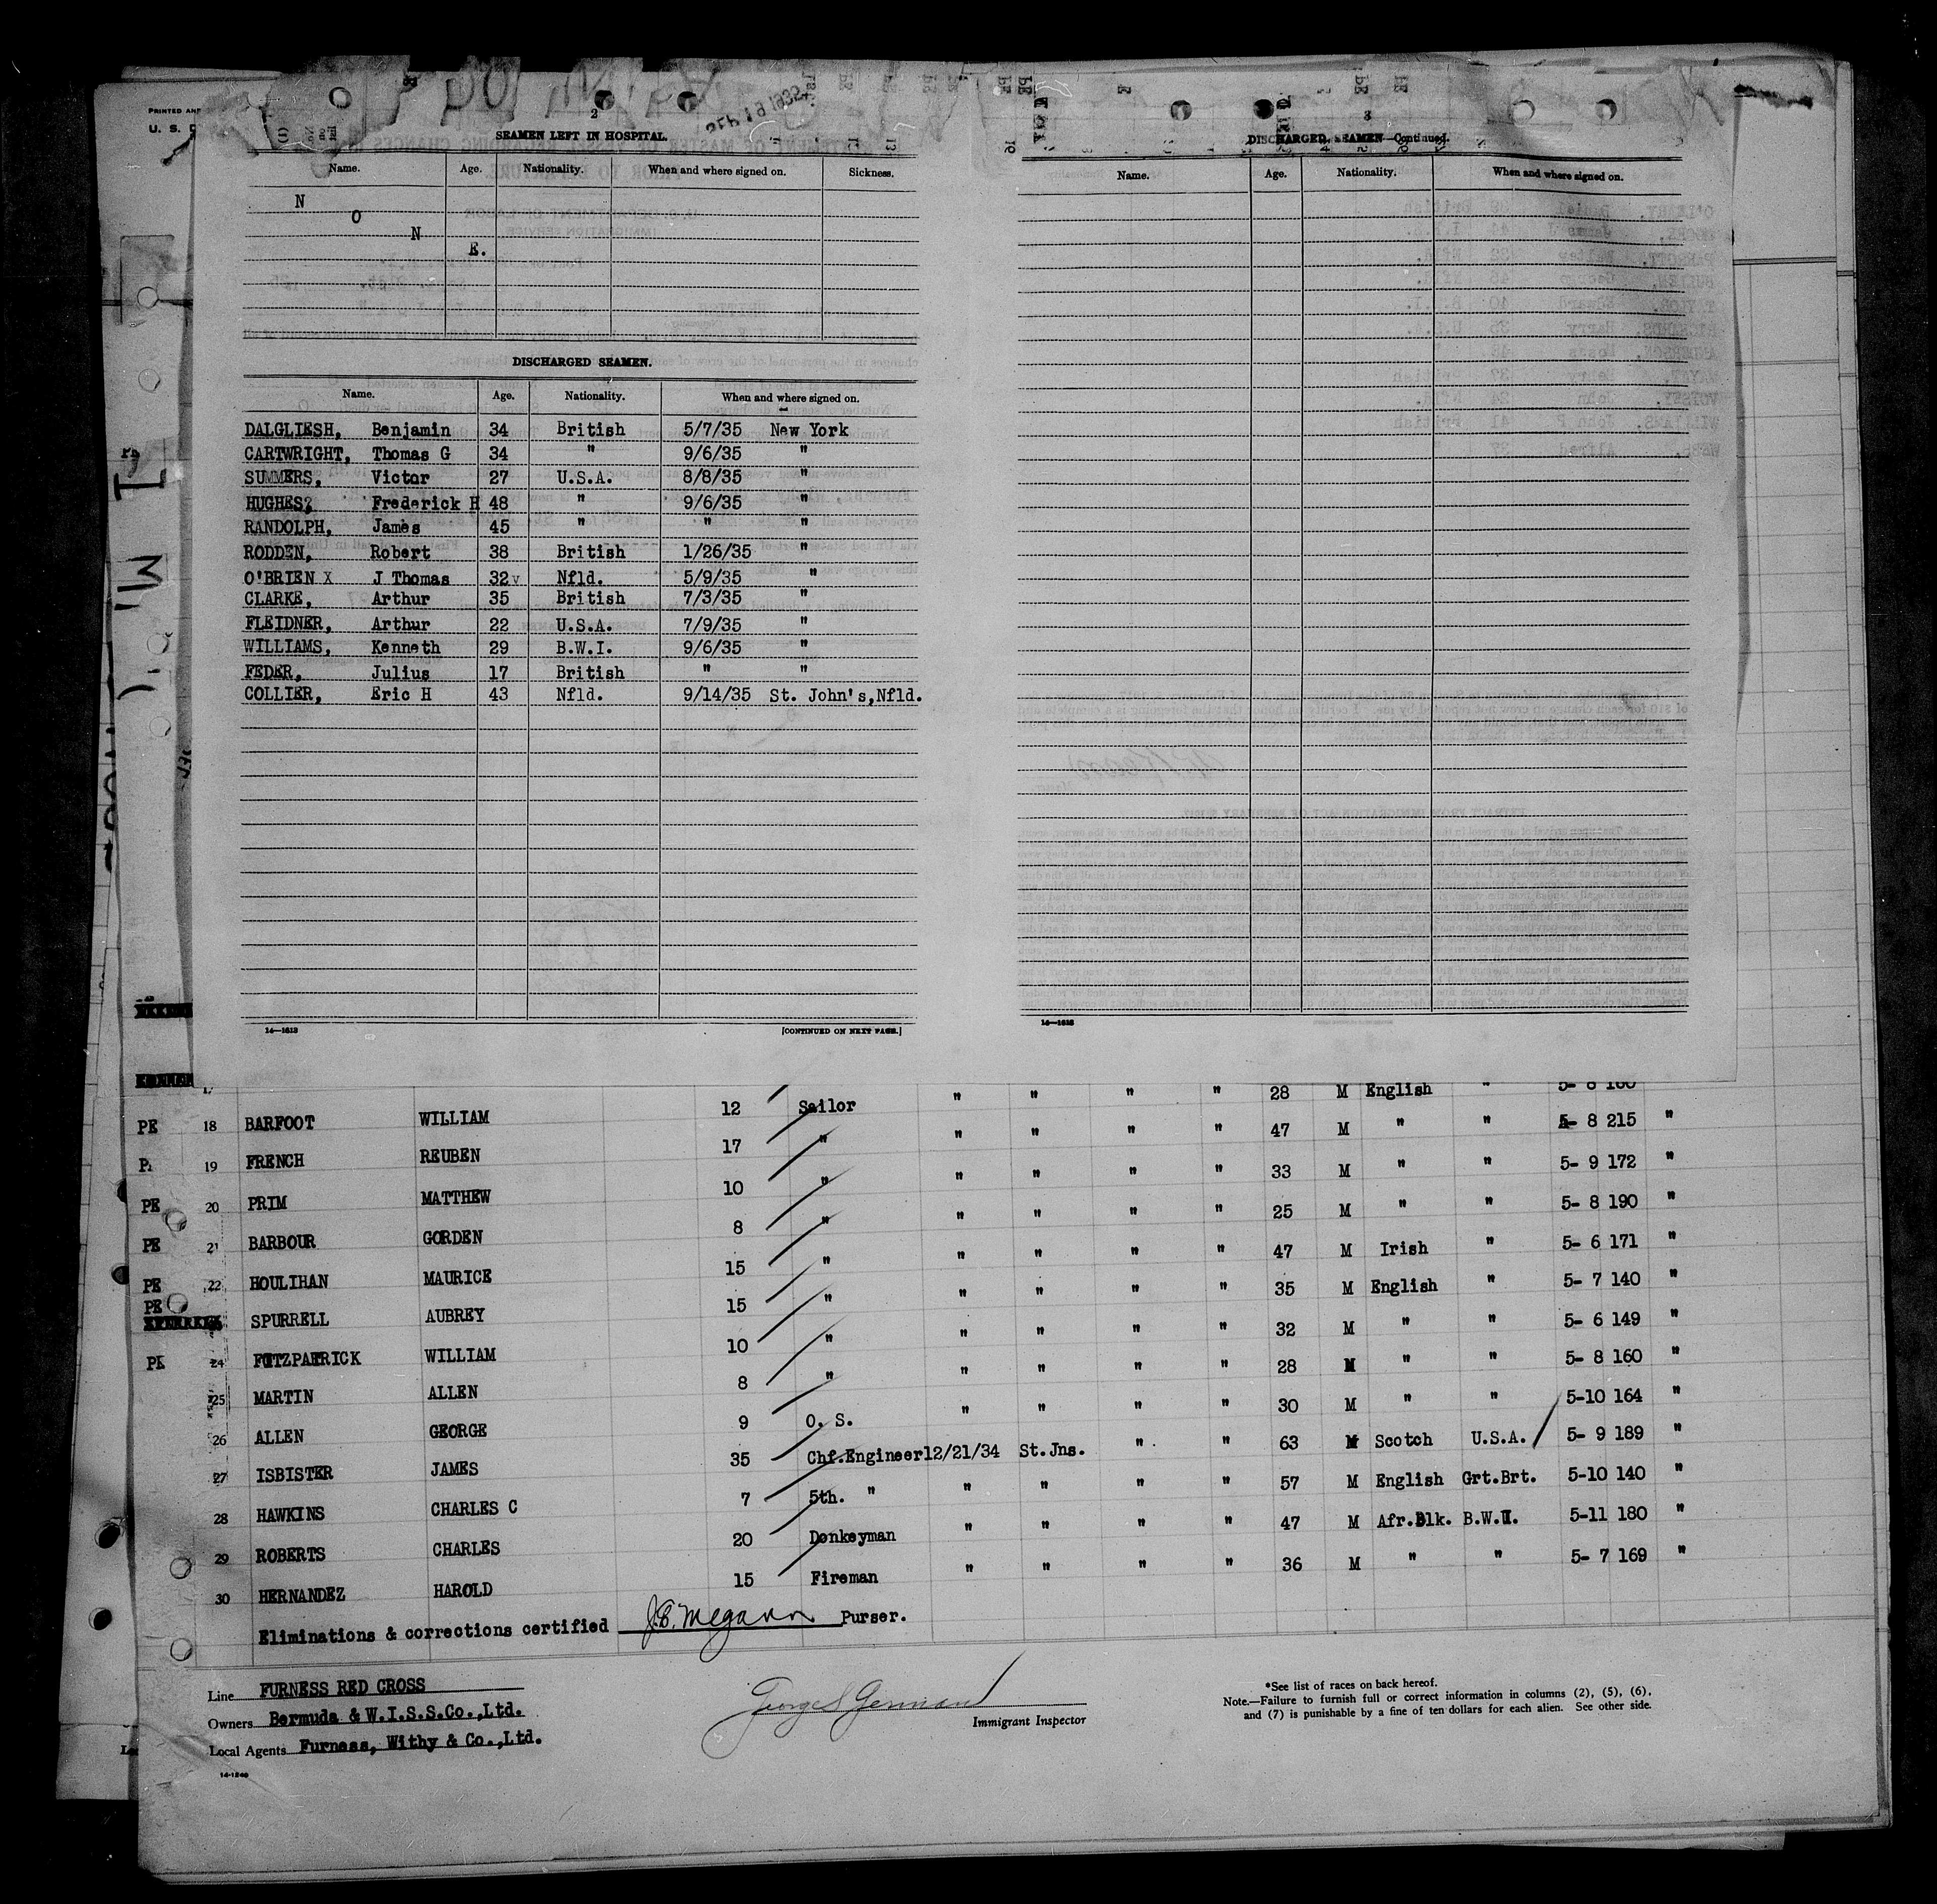 PRINTED AND
U. S. D
2
SEP 19 1935
SEAMEN LEFT IN HOSPITAL.
Name. Age. Nationality. When and where signed on. Sickness.
N
O
N
E.
DISCHARGED SEAMEN.
Name. Age. Nationality. When and where signed on.
DALGLIESH, Benjamin 34 British 5/7/35 New York
CARTWRIGHT, Thomas G 34 " 9/6/35 "
SUMMERS, Victor 27 U.S.A. 8/8/35 "
HUGHES, Frederick H 48 " 9/6/35 "
RANDOLPH, James 45 " " "
RODDEN, Robert 38 British 1/26/35 "
O'BRIEN X J Thomas 32 v Nfld. 5/9/35 "
CLARKE, Arthur 35 British 7/3/35 "
FLEIDNER, Arthur 22 U.S.A. 7/9/35 "
WILLIAMS, Kenneth 29 B.W.I. 9/6/35 "
FEDER, Julius 17 British " "
COLLIER, Eric H 43 Nfld. 9/14/35 St. John's, Nfld.
14—1613 [CONTINUED ON NEXT PAGE.]
3
DISCHARGED SEAMEN—Continued.
Name. Age. Nationality. When and where signed on.
14—1613
17 " " " " 28 M English " 5- 8 160
PE 18 BARFOOT WILLIAM 12 Sailor " " " " 47 M " " 5- 8 215 "
19 FRENCH REUBEN 17 " " " " " 33 M " " 5- 9 172 "
PE 20 PRIM MATTHEW 10 " " " " " 25 M " " 5- 8 190 "
PE 21 BARBOUR GORDEN 8 " " " " " 47 M Irish " 5- 6 171 "
PE 22 HOULIHAN MAURICE 15 " " " " " 35 M English " 5- 7 140 "
PE SPURRELL AUBREY 15 " " " " " 32 M " " 5- 6 149 "
24 FITZPATRICK WILLIAM 10 " " " " " 28 M " " 5- 8 160 "
25 MARTIN ALLEN 8 " " " " " 30 M " " 5-10 164 "
26 ALLEN GEORGE 9 O. S. " " " " 63 M Scotch U.S.A. 5- 9 189 "
27 ISBISTER JAMES 35 Chf.Engineer 12/21/34 St.Jns. " " 57 M English Grt.Brt. 5-10 140 "
28 HAWKINS CHARLES C 7 5th. " " " " " 47 M Afr.Blk. B.W.I. 5-11 180 "
29 ROBERTS CHARLES 20 Donkeyman " " " " 36 M " " 5- 7 169 "
30 HERNANDEZ HAROLD 15 Fireman
Eliminations & corrections certified J.E. Megann Purser.
Line FURNESS RED CROSS
Owners Bermuda & W.I.S.S.Co.,Ltd.
Local Agents Furness, Withy & Co.,Ltd.
14-1240
Immigrant Inspector
*See list of races on back hereof.
Note.—Failure to furnish full or correct information in columns (2), (5), (6),
and (7) is punishable by a fine of ten dollars for each alien. See other side.